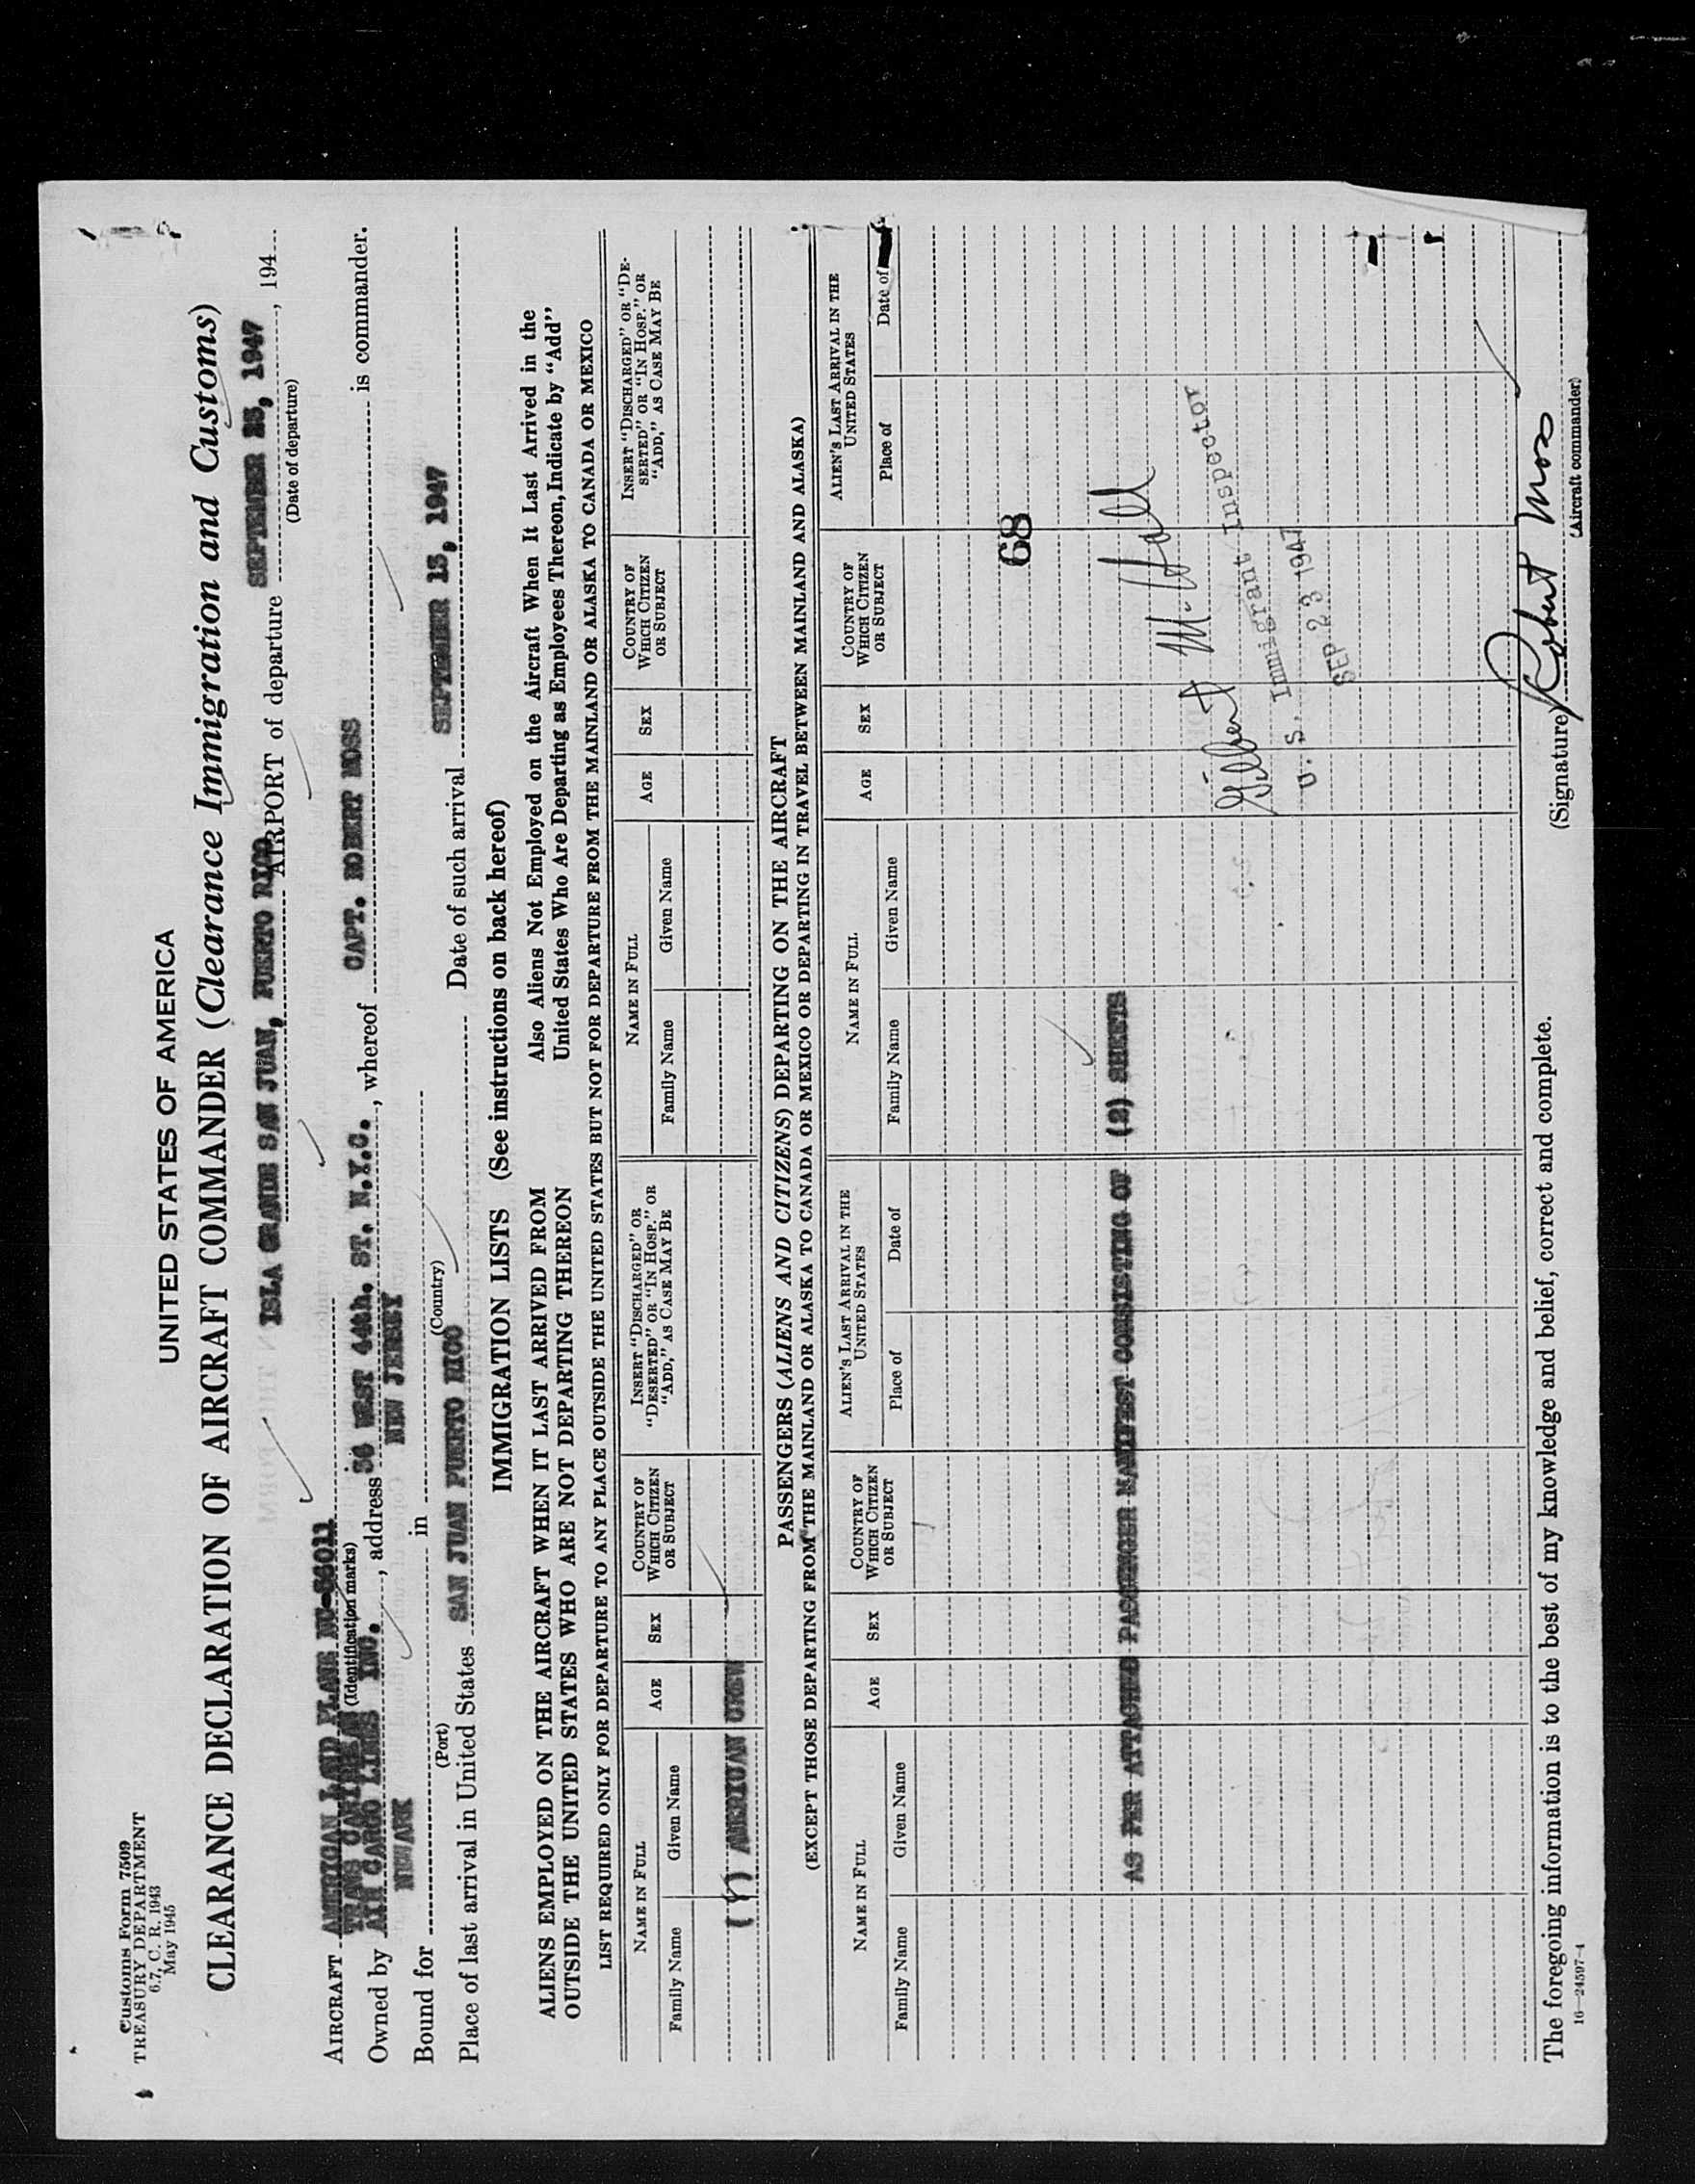 Customs Form 7509
TREASURY DEPARTMENT
6.7, C. R. 1943
May 1945
UNITED STATES OF AMERICA
CLEARANCE DECLARATION OF AIRCRAFT COMMANDER (Clearance Immigration and Customs)
ISLA GRANDE SAN JUAN, PUERTO RICO AIRPORT of departure SEPTEMBER 23, 1947, 194
(Date of departure)
AIRCRAFT AMERICAN LAND PLANE
(Identification marks)
TRANS CARIBBEAN
Owned by AIR CARGO LINES INC., address 36 WEST 44th. ST. N.Y.C., whereof CAPT. ROBERT MOSS is commander.
Bound for NEWARK in NEW JERSEY
(Port) (Country)
Place of last arrival in United States SAN JUAN PUERTO RICO Date of such arrival SEPTEMBER 15, 1947
IMMIGRATION LISTS (See instructions on back hereof)
ALIENS EMPLOYED ON THE AIRCRAFT WHEN IT LAST ARRIVED FROM OUTSIDE THE UNITED STATES WHO ARE NOT DEPARTING THEREON
Also Aliens Not Employed on the Aircraft When It Last Arrived in the United States Who Are Departing as Employees Thereon, Indicate by "Add"
LIST REQUIRED ONLY FOR DEPARTURE TO ANY PLACE OUTSIDE THE UNITED STATES BUT NOT FOR DEPARTURE FROM THE MAINLAND OR ALASKA TO CANADA OR MEXICO
NAME IN FULL AGE SEX COUNTRY OF WHICH CITIZEN OR SUBJECT INSERT "DISCHARGED" OR "DESERTED" OR "IN HOSP." OR "ADD," AS CASE MAY BE NAME IN FULL AGE SEX COUNTRY OF WHICH CITIZEN OR SUBJECT INSERT "DISCHARGED" OR "DESERTED" OR "IN HOSP." OR "ADD," AS CASE MAY BE
Family Name Given Name Family Name Given Name
AMERICAN CREW
PASSENGERS (ALIENS AND CITIZENS) DEPARTING ON THE AIRCRAFT
(EXCEPT THOSE DEPARTING FROM THE MAINLAND OR ALASKA TO CANADA OR MEXICO OR DEPARTING IN TRAVEL BETWEEN MAINLAND AND ALASKA)
NAME IN FULL AGE SEX COUNTRY OF WHICH CITIZEN OR SUBJECT ALIEN'S LAST ARRIVAL IN THE UNITED STATES NAME IN FULL. AGE SEX COUNTRY OF WHICH CITIZEN OR SUBJECT ALIEN'S LAST ARRIVAL IN THE UNITED STATES
Family Name Given Name Place of Date of Family Name Given Name Place of Date of
68
AS PER ATTACHED PASSENGER MANIFEST CONSISTING OF (2) SHEETS
Gilbert M. Hall
U. S. Immigrant Inspector
SEP 23 1947
The foregoing information is to the best of my knowledge and belief, correct and complete. (Signature) Robert Moss
(Aircraft commander)
16—24597-1